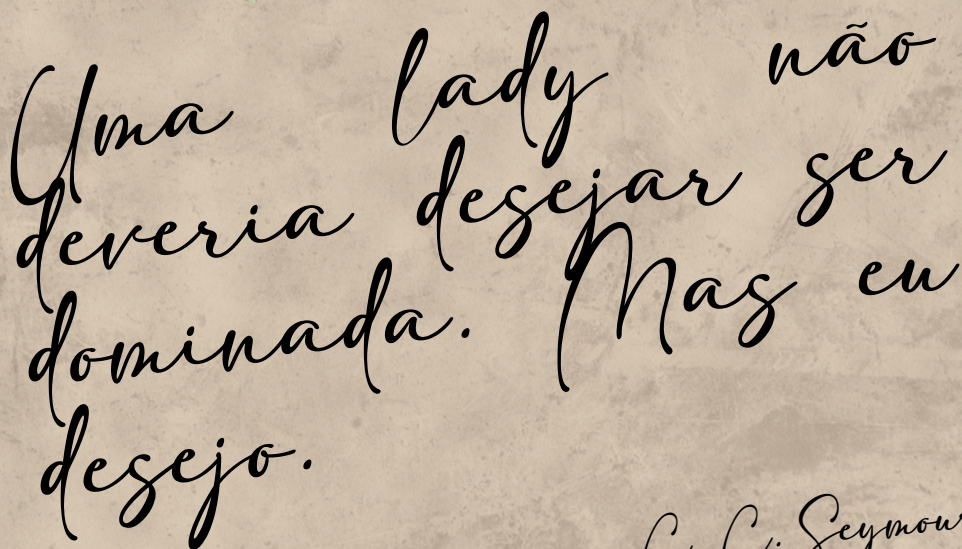 Uma lady não
deveria desejar ser
dominada. Mas eu
desejo.
Seymour